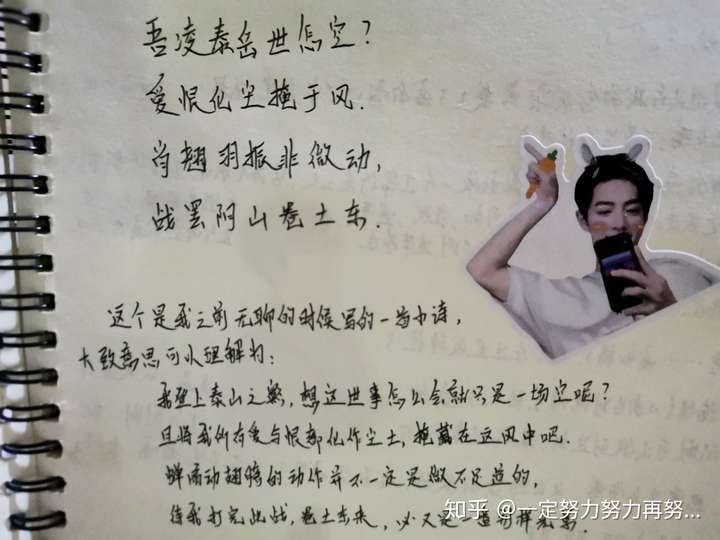 吾凌泰岳世怎定？
爱恨化尘掩于风.
肖翅羽振非微动,
战罢阴山卷土东.
这个是我之前无聊的时候写的一首小诗,
大致意思可以理解为:
我登上泰山之巅, 想这世事怎么会就只是一场定呢?
且将我所有爱与恨都化作尘土, 掩藏在这风中吧.
蝉涌动翅膀的动作并不一定是微不足道的,
待我打完此战, 卷土东来, 必又是一道
知乎 @一定努力努力再努...